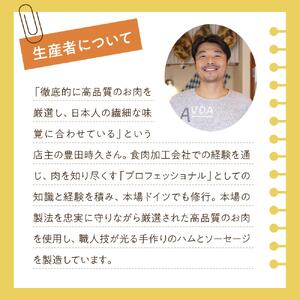 生産者について
「徹底的に高品質のお肉を
厳選し、日本人の繊細な味
覚に合わせている」という
店主の豊田時久さん。食肉加工会社での経験を通
じ、肉を知り尽くす「プロフェッショナル」としての
知識と経験を積み、本場ドイツでも修行。本場の
製法を忠実に守りながら厳選された高品質のお肉
を使用し、職人技が光る手作りのハムとソーセージ
を製造しています。